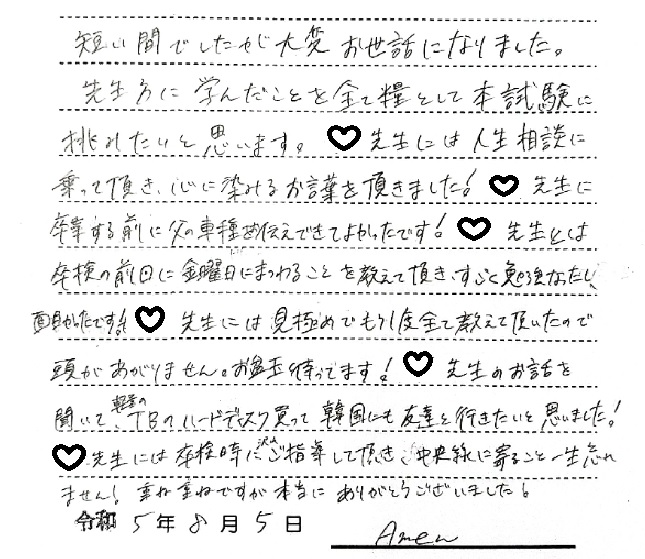 短い間でしたが大変お世話になりました。
先生方に学んだことを全て糧として本試験に
挑みたいと思います。♡先生には人生相談に
乗って頂き、心に染みるお言葉を頂きました！♡先生に
卒業する前に父の車種お伝えできてよかったです！♡先生とは
卒検の前日に金曜日にまつわることを教えて頂き、すごく勉強なたし、
面白かったです！♡先生には見極めでもう1度全て教えて頂いたので
頭があがりません。お盆玉待ってます！♡先生のお話を
聞いて、TBのハードディスク買って韓国にも友達と行きたいと思いました！
♡先生には卒検時に沢山ご指導して頂き、中央線に寄ること一生忘れ
ません！重ね重ねですが本当にありがとうございました！
令和5年8月5日